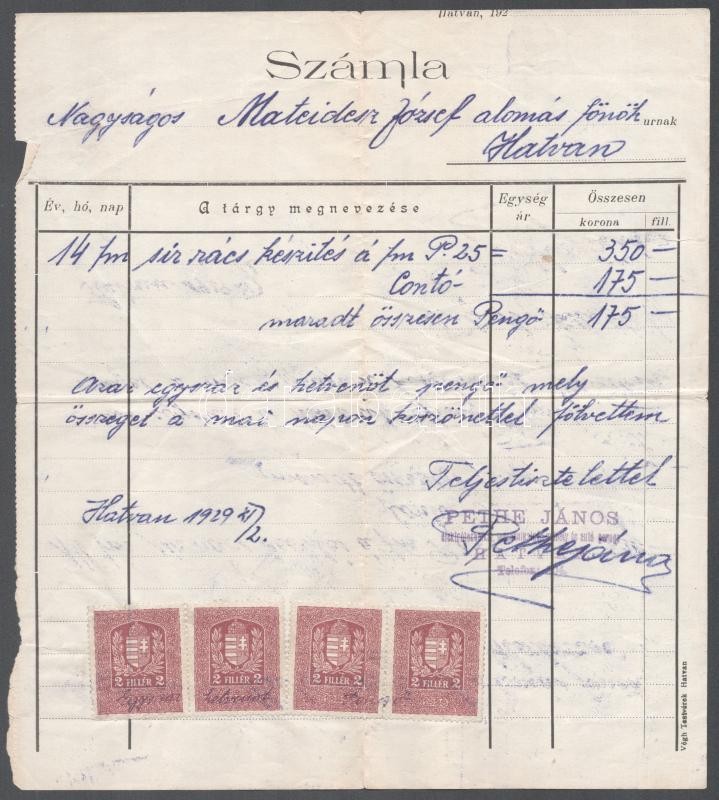 Hatvan, 192
Számla
Nagyságos Mateidesz József alomás fönök urnak
Hatvan
Év, hó, nap A tárgy megnevezése Egység ár Összesen
korona fill.
14 fm sir rács készités á fm P. 25 = 350 —
Contó 175 —
maradt összesen Pengő 175 —
Azaz egyszáz és hetvenöt pengő mely
összeget a mai napon köszönettel fölvettem
Teljes tisztelettel
Hatvan 1929 VI/2.
PETHE JÁNOS
HATVAN
Telefon
Pethe János
2 FILLÉR 2 2 FILLÉR 2 2 FILLÉR 2 2 FILLÉR 2
Végh Testvérek Hatvan